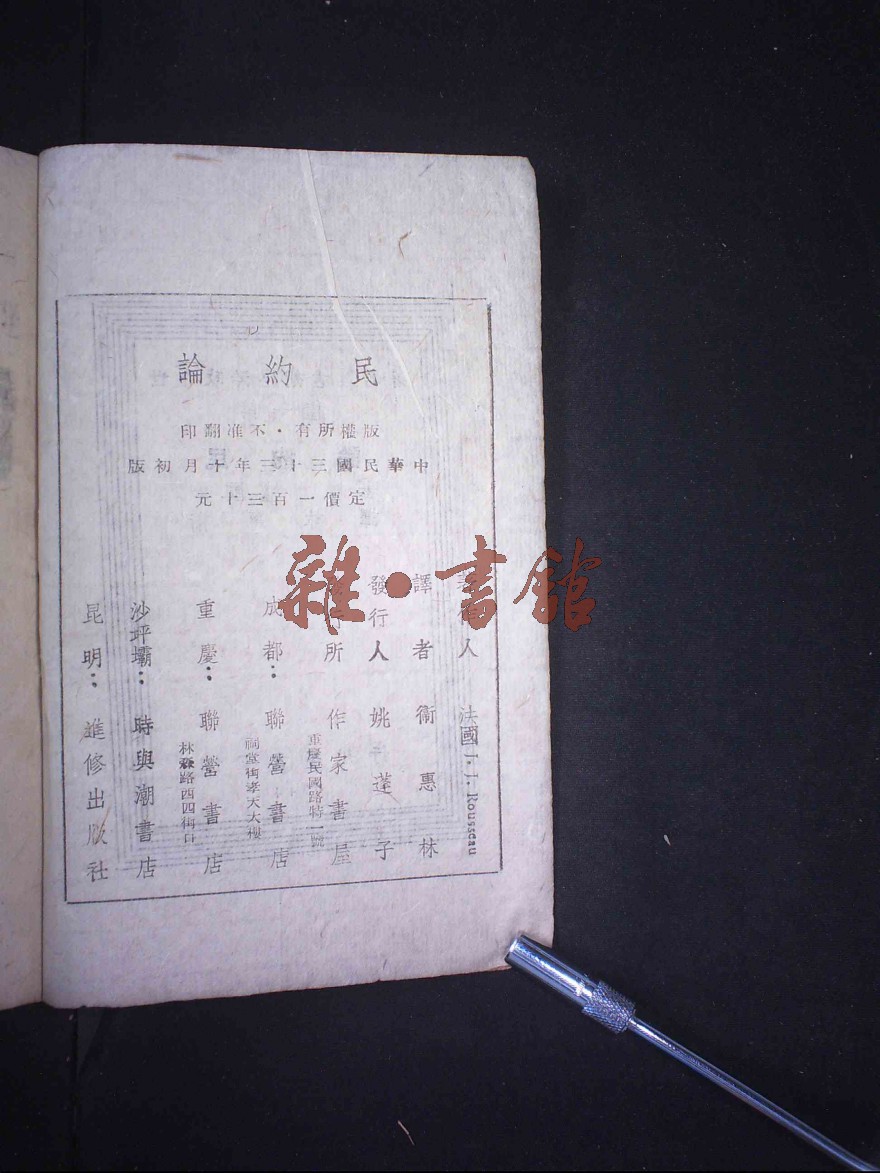 民約論
版權所有・不准翻印
中華民國三十三年十月初版
定價一百三十元
人 法國 J. J. Rousseau
譯者 衞惠林
發行人 姚蓬子
所 作家書屋
重慶民國路特一號
成都：聯營書店
祠堂街孝天大樓
重慶：聯營書店
林森路西四街口
沙坪壩：時與潮書店
昆明：進修出版社
雜・書館